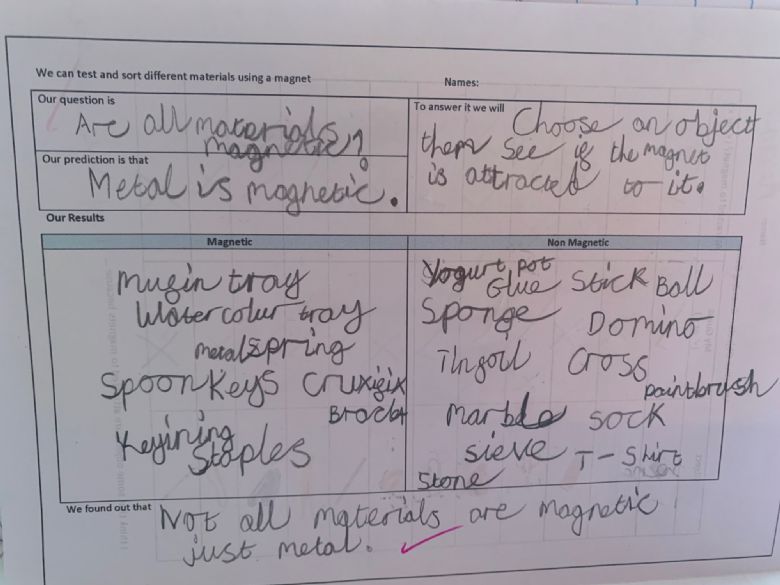 We can test and sort different materials using a magnet
Names:
Our question is
Are all materials
magnetic?
Our prediction is that
Metal is magnetic.
To answer it we will Choose an object
then see if the magnet
is attracted to it.
Our Results
Magnetic
mufin tray
Watercolour tray
metal spring
Spoon Keys Cruxifix
Keyining
Staples
Non Magnetic
Yogurt pot
Glue Stick Ball
Sponge Domino
Tinfoil Cross
paintbrush
marble sock
sieve T-Shirt
Stone
We found out that Not all materials are magnetic
just metal.